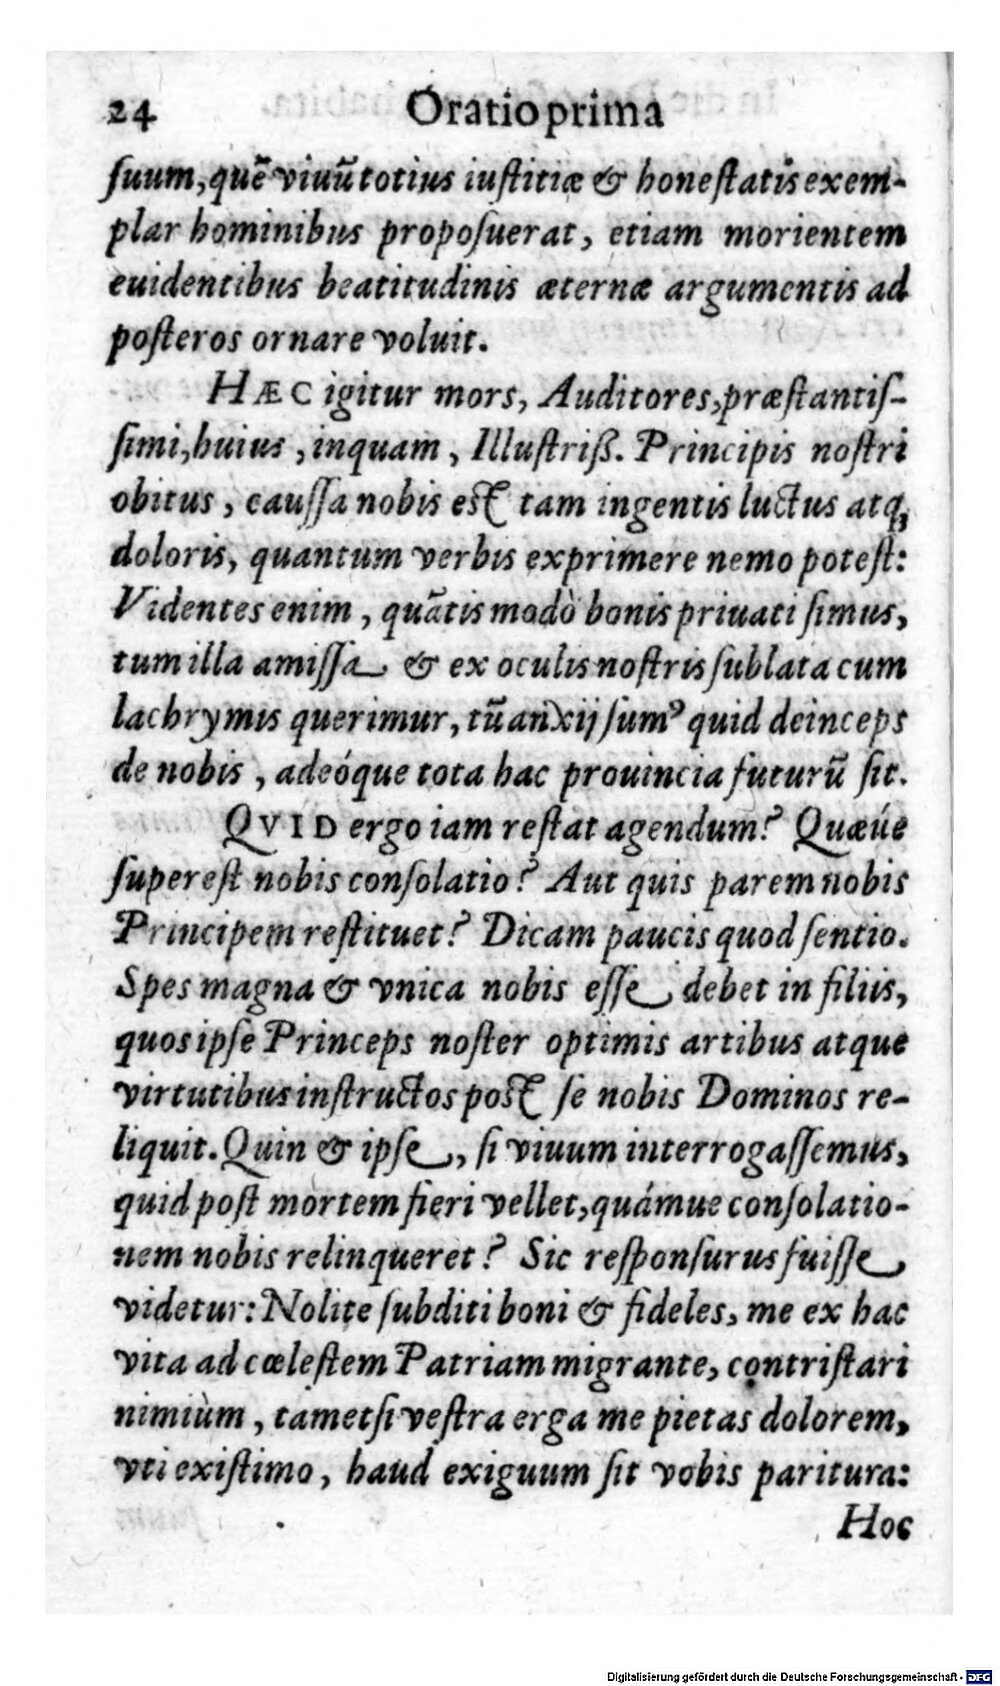 24 Oratio prima
ſuum, quẽ viuũ totius iuſtitiæ & honeſtatis exem-
plar hominibus propoſuerat, etiam morientem
euidentibus beatitudinis æternæ argumentis ad
poſteros ornare voluit.
HÆC igitur mors, Auditores, præſtantiſ-
ſimi, huius, inquam, Illuſtriß. Principis noſtri
obitus, cauſſa nobis eſt tam ingentis luctus atq;
doloris, quantum verbis exprimere nemo poteſt:
Videntes enim, quãtis modò bonis priuati ſimus,
tum illa amiſſa & ex oculis noſtris ſublata cum
lachrymis querimur, tũ anxij ſumꝰ quid deinceps
de nobis, adeóque tota hac prouincia futurũ ſit.
QVID ergo iam reſtat agendum? Quæúe
ſupereſt nobis conſolatio? Aut quis parem nobis
Principem reſtituet? Dicam paucis quod ſentio.
Spes magna & vnica nobis eſſe debet in filiis,
quos ipſe Princeps noſter optimis artibus atque
virtutibus inſtructos poſt ſe nobis Dominos re-
liquit. Quin & ipſe, ſi viuum interrogaſſemus,
quid poſt mortem fieri vellet, quámue conſolatio-
nem nobis relinqueret? Sic reſponſurus fuiſſe
videtur: Nolite ſubditi boni & fideles, me ex hac
vita ad cœleſtem Patriam migrante, contriſtari
nimiùm, tametſi veſtra erga me pietas dolorem,
vti exiſtimo, haud exiguum ſit vobis paritura:
Hoc
Digitalisierung gefördert durch die Deutsche Forschungsgemeinschaft - DFG